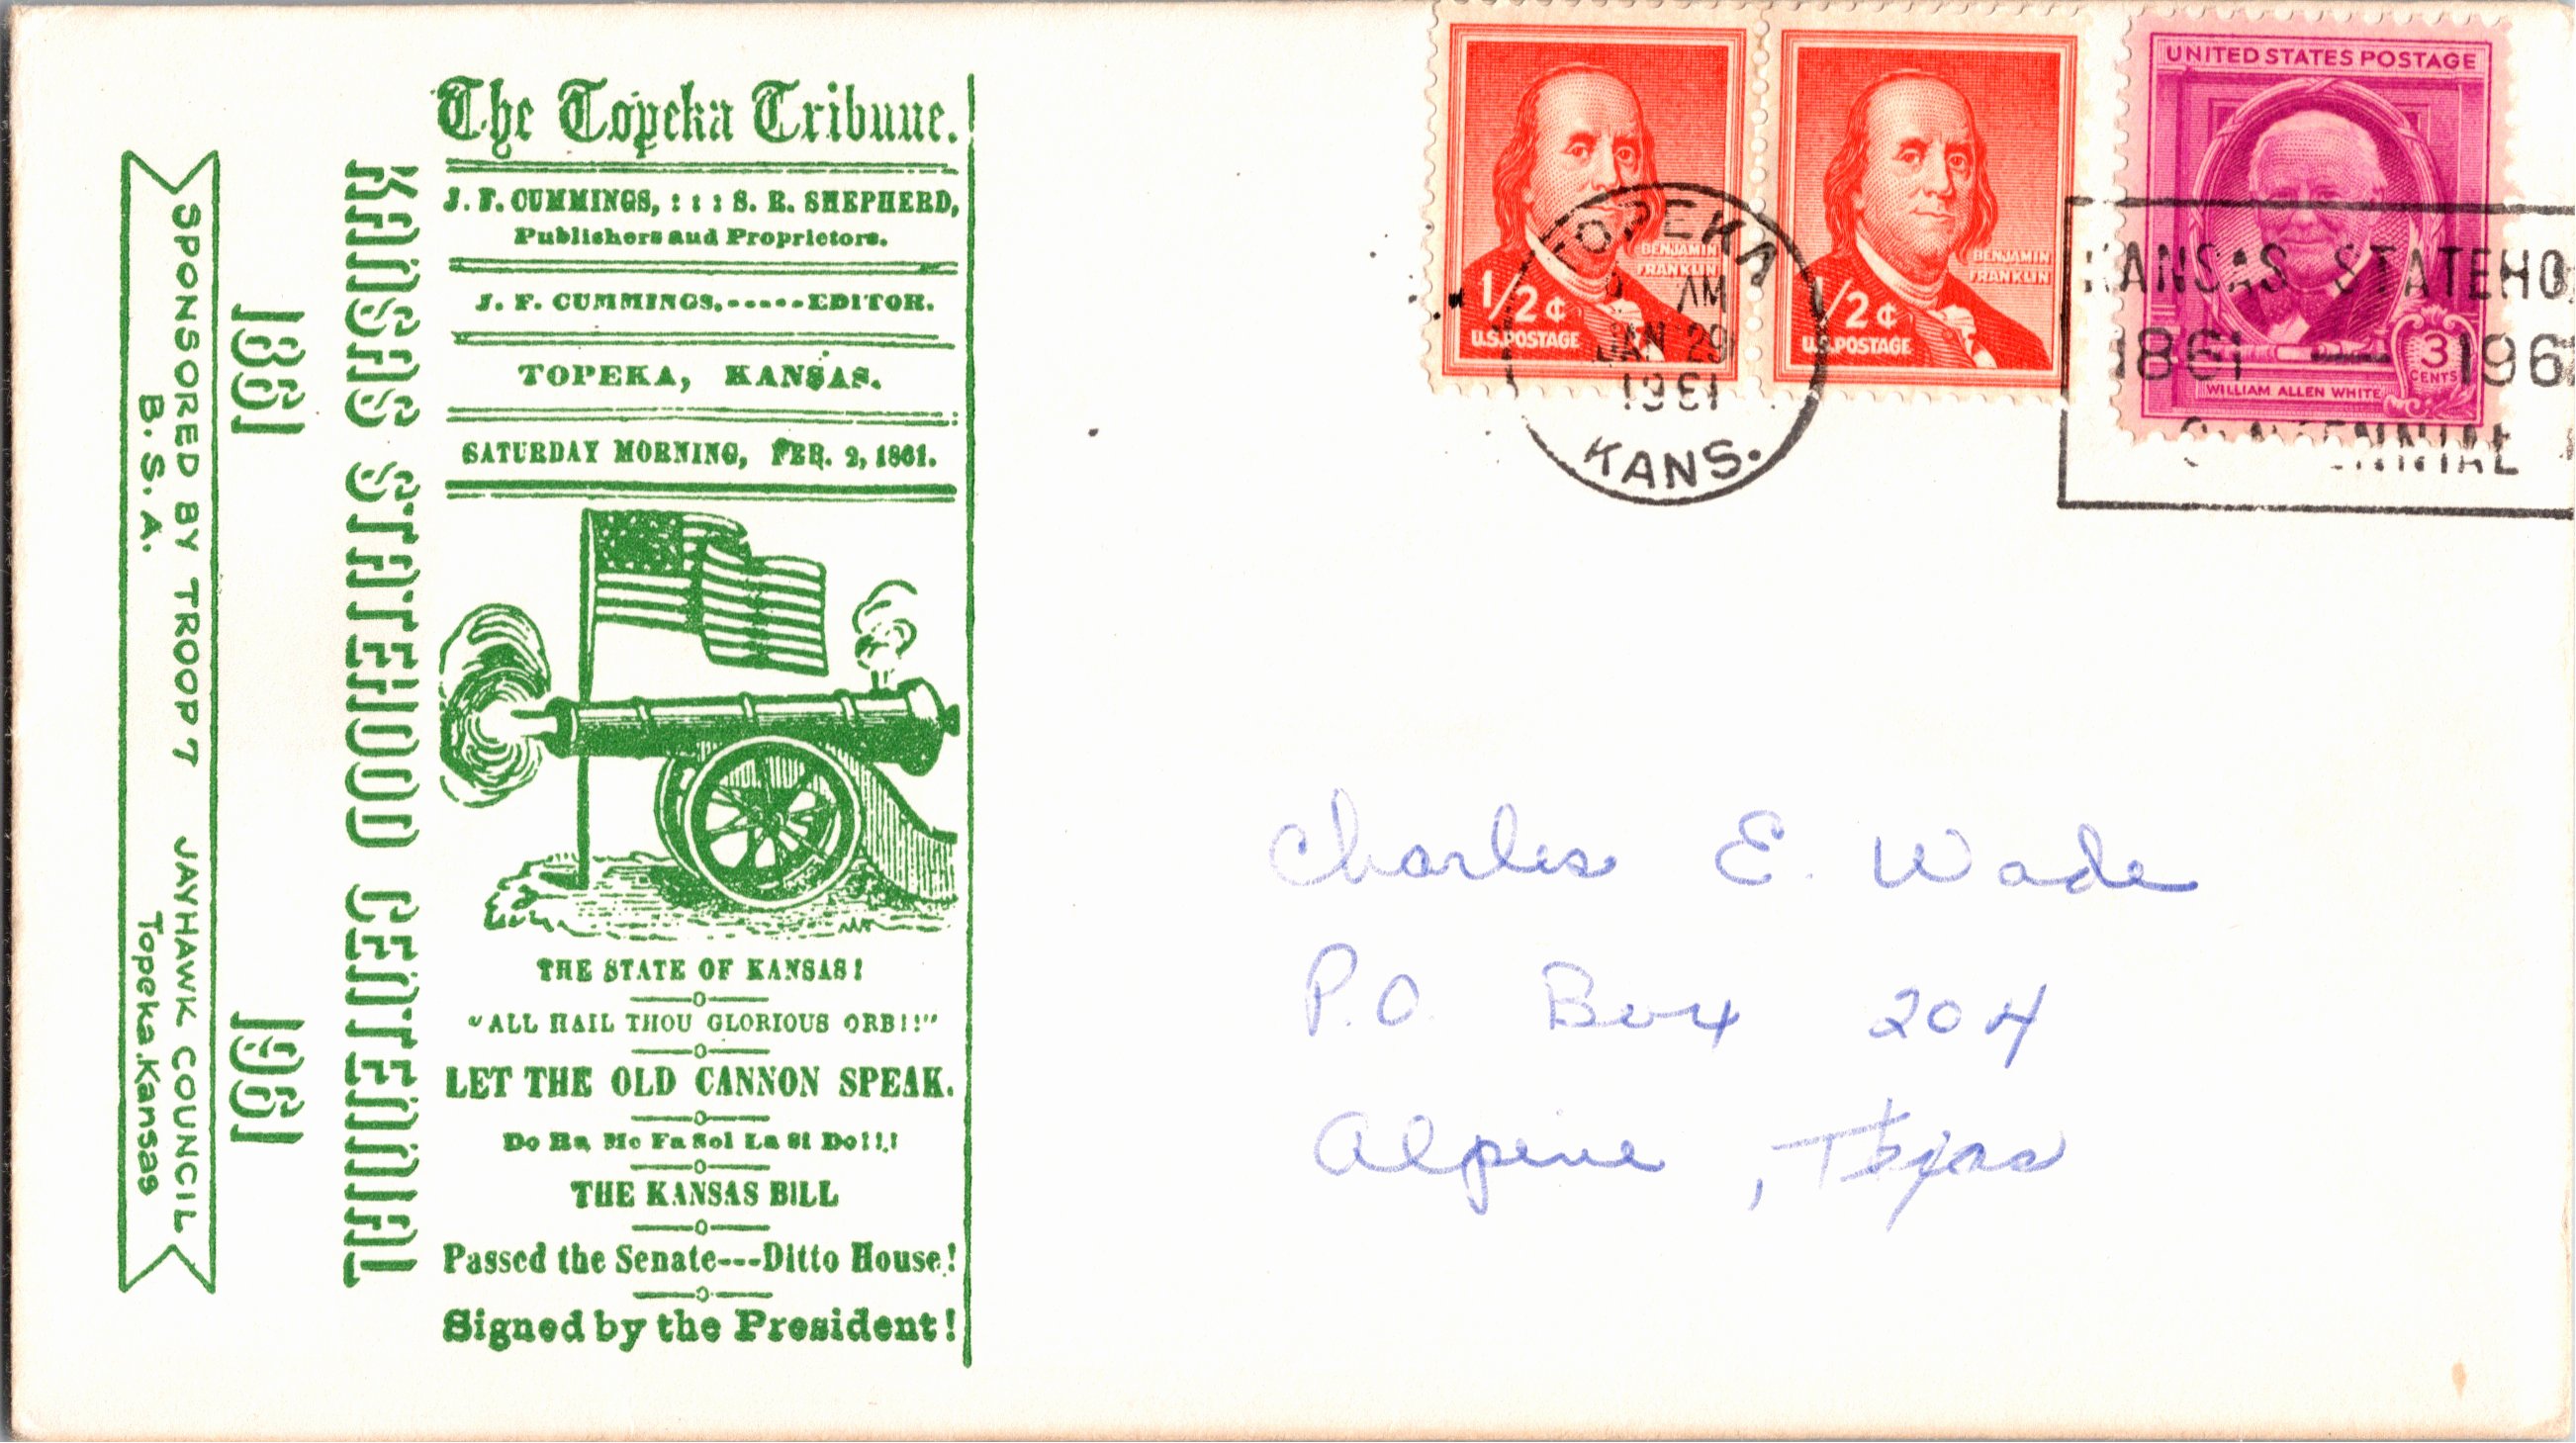 SPONSORED BY TROOP 7 JAYHAWK COUNCIL
B. S. A. Topeka. Kansas
1861 1961
KANSAS STATEHOOD CENTENNIAL
The Topeka Tribune.
J. F. CUMMINGS, : : : S. R. SHEPHERD,
Publishers and Proprietors.
J. F. CUMMINGS,-----EDITOR.
TOPEKA, KANSAS.
SATURDAY MORNING, FEB. 2, 1861.
THE STATE OF KANSAS!
"ALL HAIL THOU GLORIOUS ORB!!"
LET THE OLD CANNON SPEAK.
Do Ra Me Fa Sol La Si Do!!!
THE KANSAS BILL
Passed the Senate---Ditto House!
Signed by the President!
BENJAMIN
FRANKLIN
1/2 ¢
U.S.POSTAGE
BENJAMIN
FRANKLIN
1/2 ¢
U.S.POSTAGE
UNITED STATES POSTAGE
3
CENTS
WILLIAM ALLEN WHITE
TOPEKA
AM
JAN 29
1961
KANS.
KANSAS STATEHO
1861 — 196
CENTENNIAL
Charles E. Wade
P.O. Box 204
Alpine, Texas